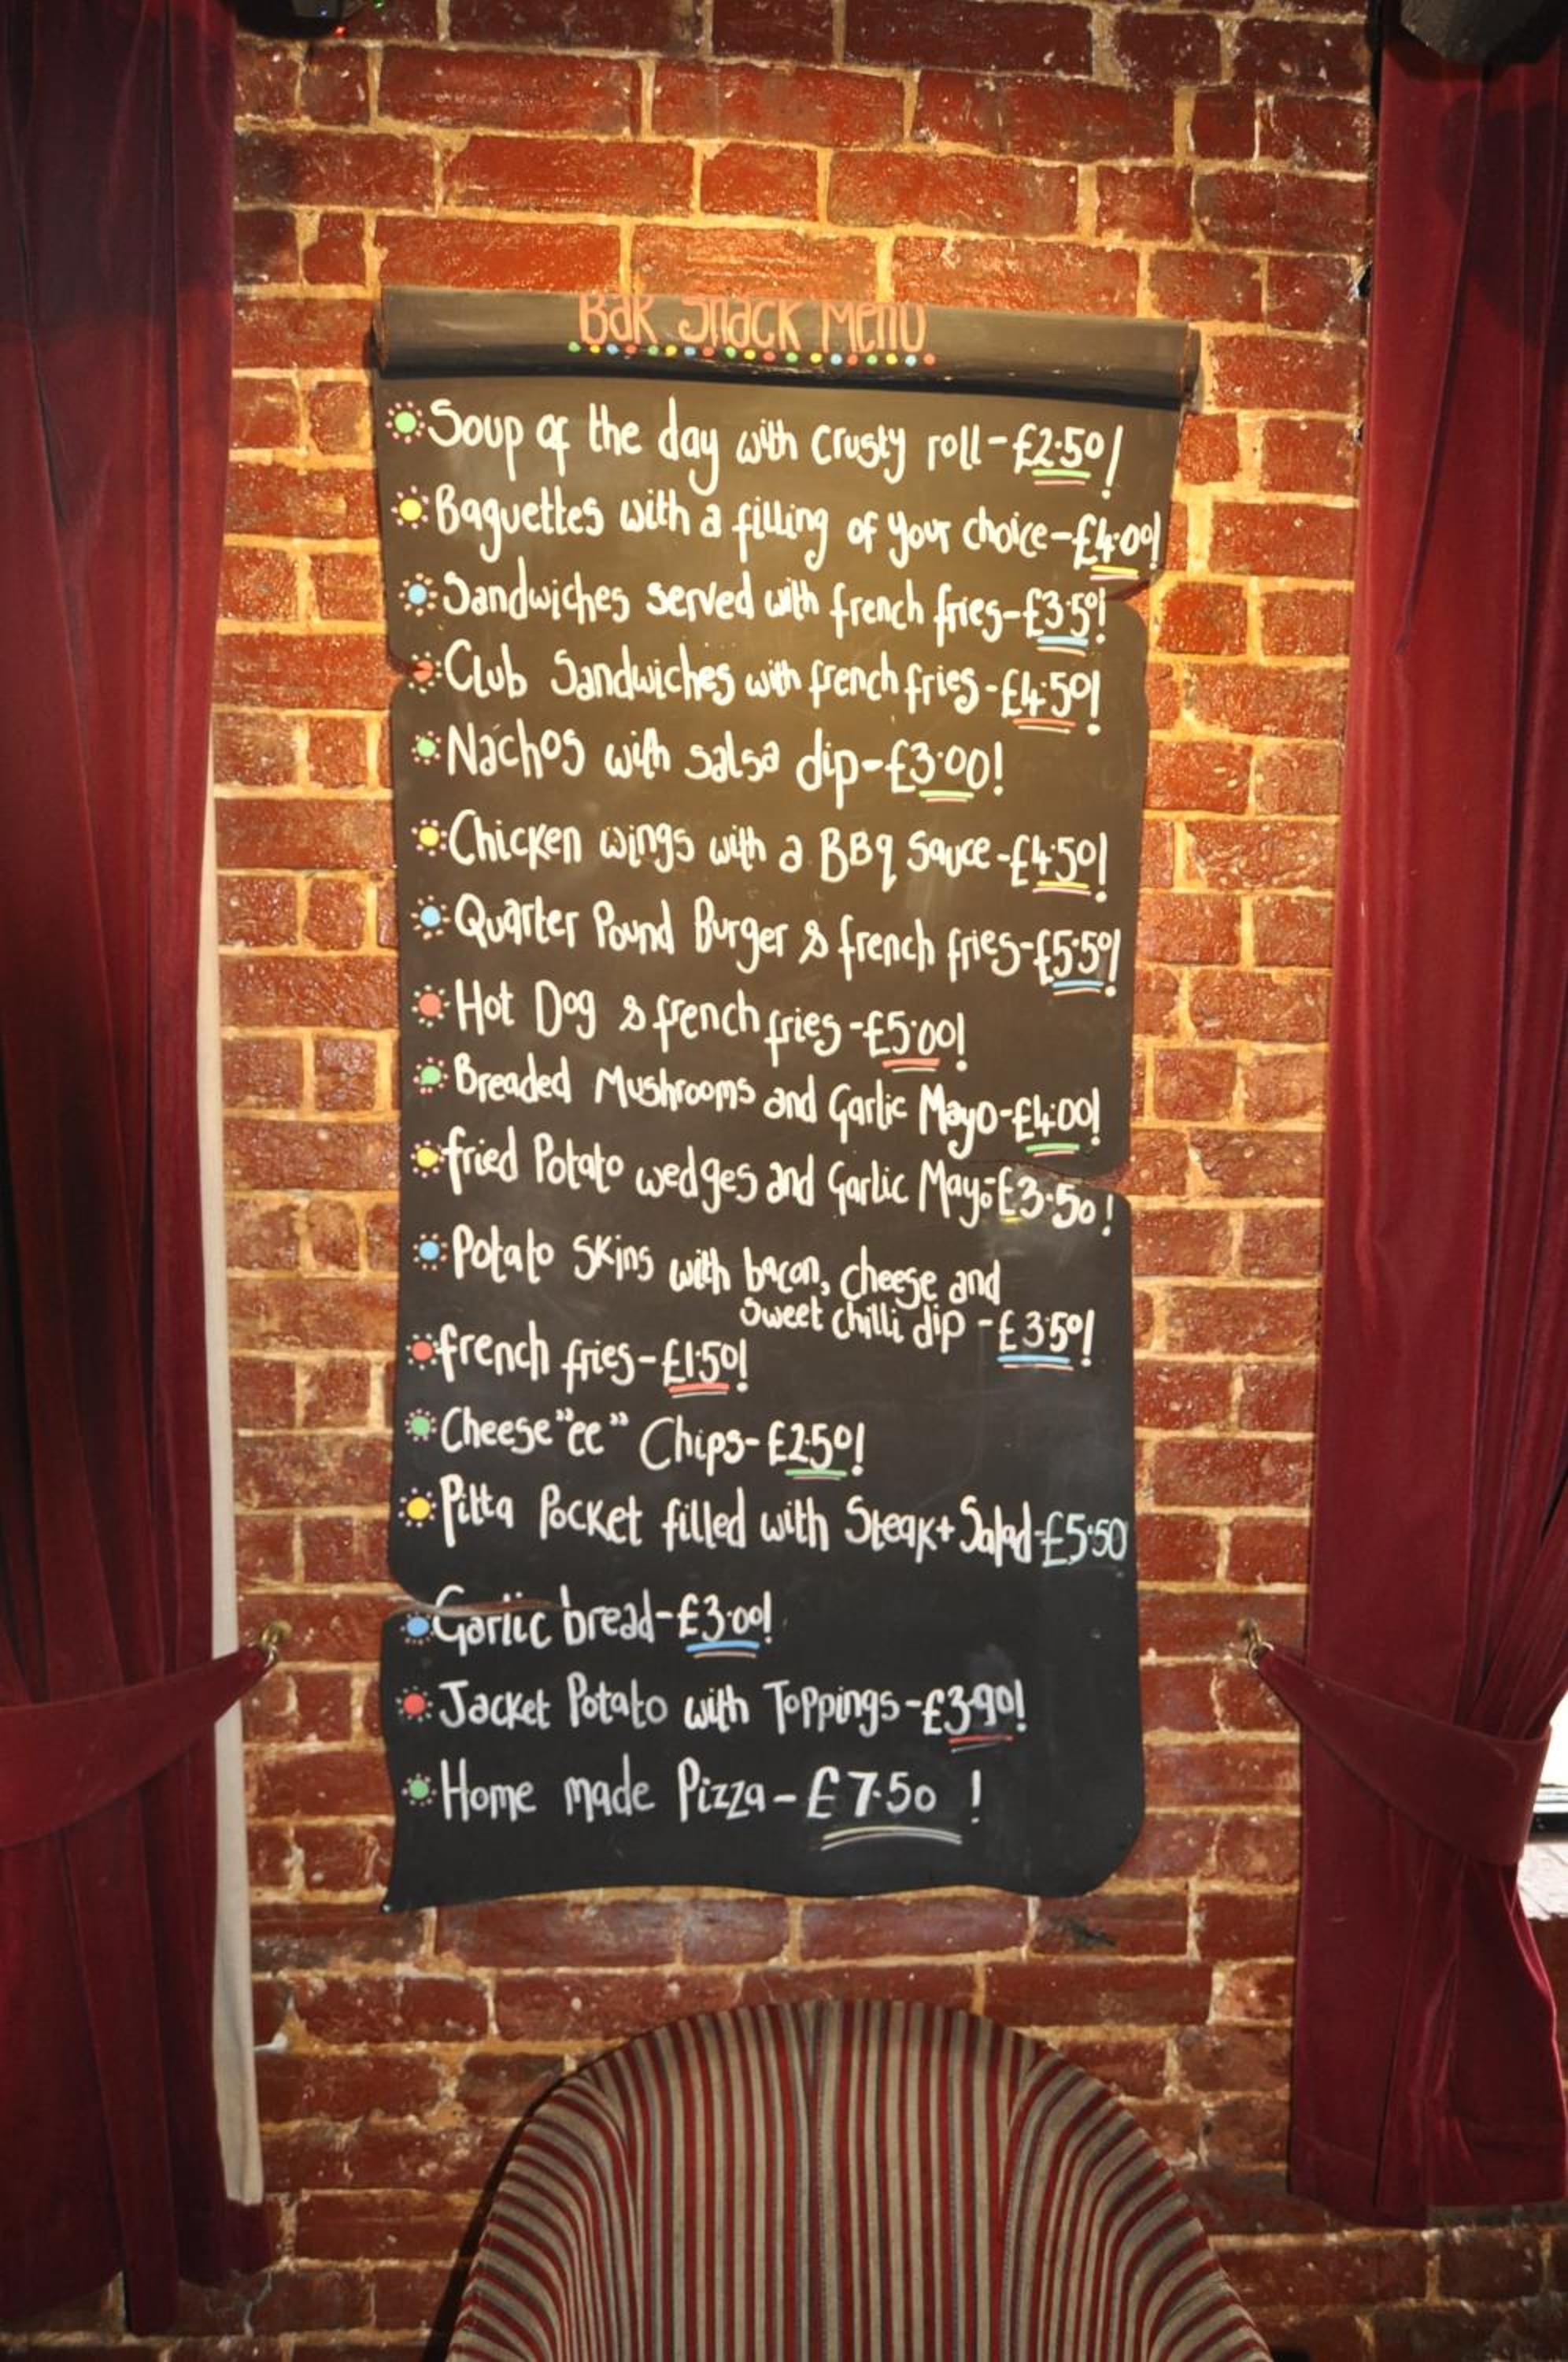 Bar Snack Menu
Soup of the day with Crusty roll - £2.50!
Baguettes with a filling of your choice - £4.00!
Sandwiches served with french fries - £3.50!
Club Sandwiches with french fries - £4.50!
Nachos with salsa dip - £3.00!
Chicken wings with a BBq Sauce - £4.50!
Quarter Pound Burger & french fries - £5.50!
Hot Dog & french fries - £5.00!
Breaded Mushrooms and Garlic Mayo - £4.00!
fried Potato wedges and Garlic Mayo £3.50!
Potato Skins with bacon, cheese and
sweet chilli dip - £3.50!
french fries - £1.50!
Cheese "ee" Chips - £2.50!
Pitta Pocket filled with Steak + Salad - £5.50
Garlic bread - £3.00!
Jacket Potato with Toppings - £3.90!
Home made Pizza - £7.50 !